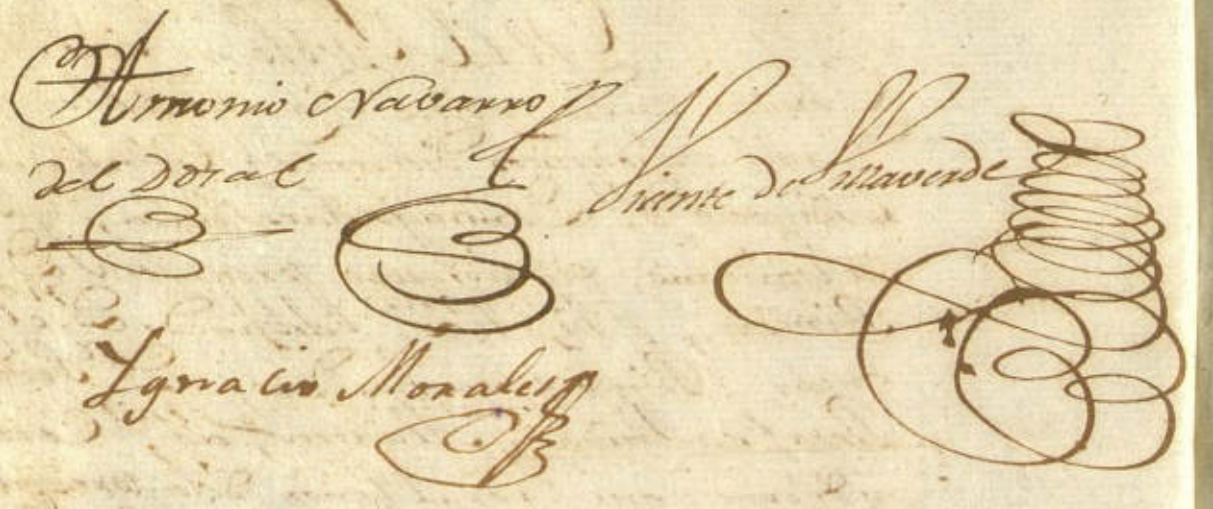 Antonio Navarro
del Doral
Vicente de Villaverde
Ygnacio Morales